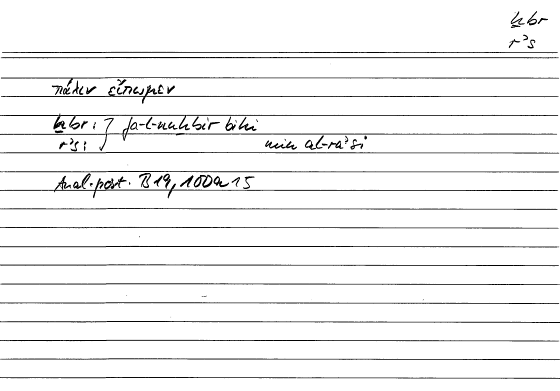 ḫbr
rʾs
πάλιν εἴπωμεν
ḫbr: } fa-l-nuḫbir bihi
rʾs: } min al-raʾsi
Anal. post. B 19, 100a 15